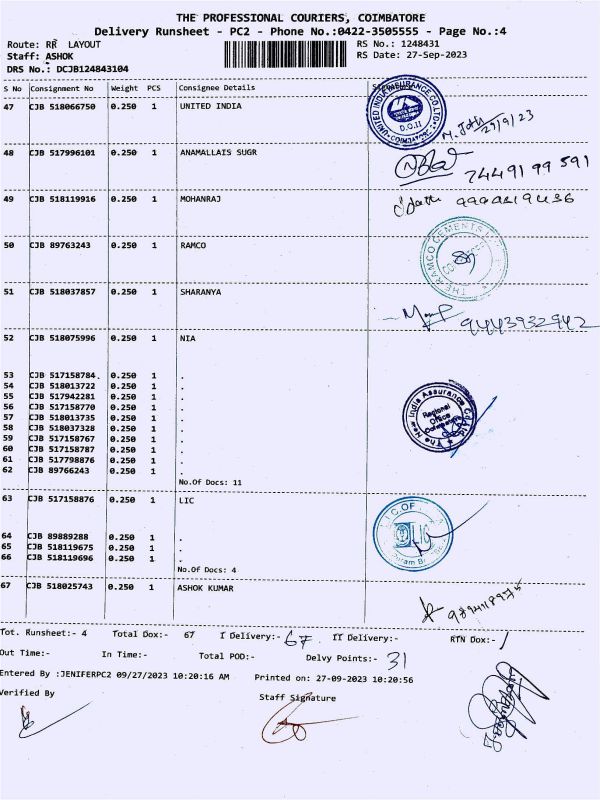 THE PROFESSIONAL COURIERS, COIMBATORE
Delivery Runsheet - PC2 - Phone No.:0422-3505555 - Page No.:4
Route: RR LAYOUT RS No.: 1248431
Staff: ASHOK RS Date: 27-Sep-2023
DRS No.: DCJB124843104
S No Consignment No Weight PCS Consignee Details
47 CJB 518066750 0.250 1 UNITED INDIA
UNITED INDIA INSURANCE CO. LTD.
D.O.II
27/9/23
48 CJB 517996101 0.250 1 ANAMALLAIS SUGR
7449199591
49 CJB 518119916 0.250 1 MOHANRAJ
50 CJB 89763243 0.250 1 RAMCO
THE RAMCO CEMENTS
51 CJB 518037857 0.250 1 SHARANYA
9443932942
52 CJB 518075996 0.250 1 NIA
53 CJB 517158784. 0.250 1 .
54 CJB 518013722 0.250 1 .
55 CJB 517942281 0.250 1 .
56 CJB 517158770 0.250 1 .
57 CJB 518013735 0.250 1 .
58 CJB 518037328 0.250 1 .
59 CJB 517158767 0.250 1 .
60 CJB 517158787 0.250 1 .
61 CJB 517798876 0.250 1 .
62 CJB 89766243 0.250 1 .
The New India Assurance Co. Ltd
Regional
Office
No.Of Docs: 11
63 CJB 517158876 0.250 1 LIC
L.I.C. OF
LIC
64 CJB 89889288 0.250 1 .
65 CJB 518119675 0.250 1 .
66 CJB 518119696 0.250 1 .
No.Of Docs: 4
67 CJB 518025743 0.250 1 ASHOK KUMAR
Tot. Runsheet:- 4 Total Dox:- 67 I Delivery:- 67 II Delivery:- RTN Dox:- /
Out Time:- In Time:- Total POD:- Delvy Points:- 31
Entered By :JENIFERPC2 09/27/2023 10:20:16 AM Printed on: 27-09-2023 10:20:56
Verified By Staff Signature